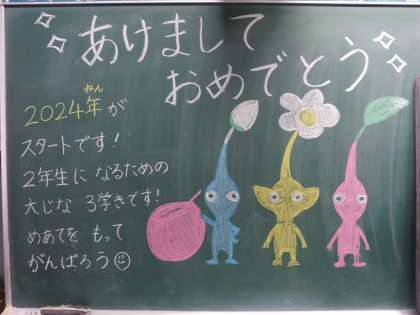 あけまして
おめでとう
ねん
2024年が
スタートです!
2年生に なるための
大じな 3学きです!
めあてを もって
がんばろう